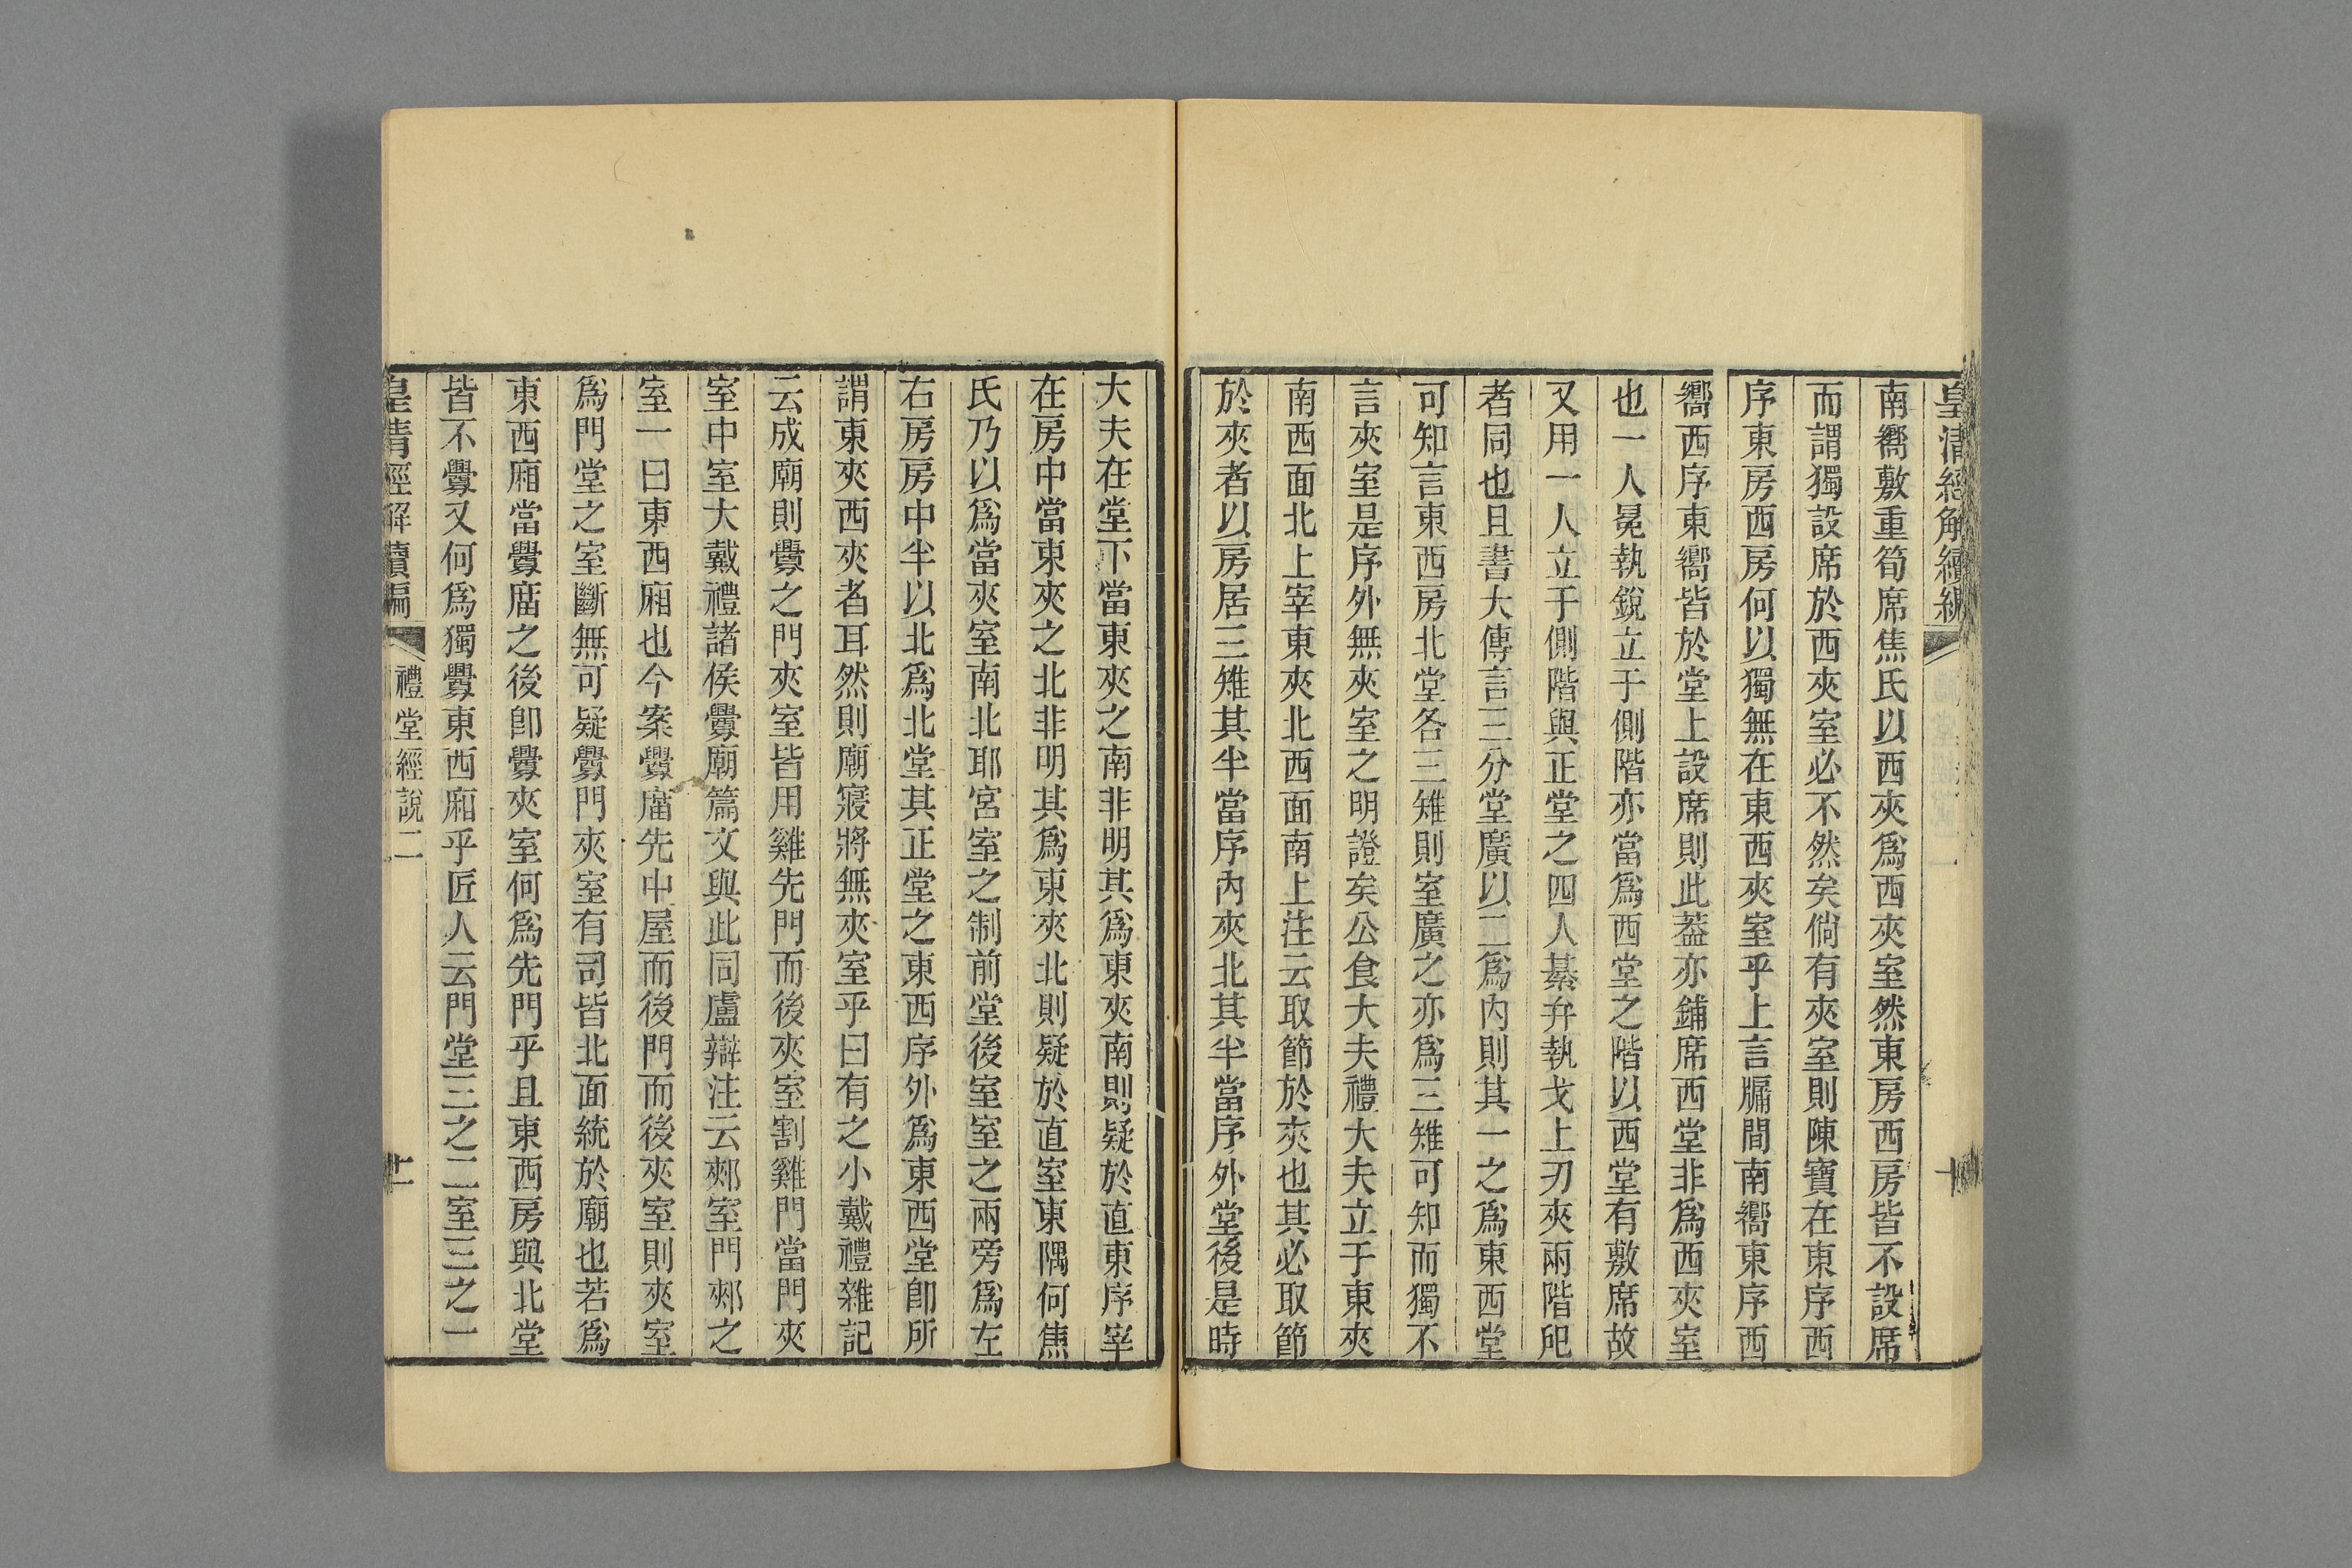 皇清經解續編
十
南嚮敷重筍席焦氏以西夾爲西夾室然東房西房皆不設席
而謂獨設席於西夾室必不然矣倘有夾室則陳寶在東序西
序東房西房何以獨無在東西夾室乎上言牖間南嚮東序西
嚮西序東嚮皆於堂上設席則此葢亦鋪席西堂非爲西夾室
也一人冕執銳立于側階亦當爲西堂之階以西堂有敷席故
又用一人立于側階與正堂之四人綦弁執戈上刃夾兩階戺
者同也且書大傳言三分堂廣以二爲内則其一之爲東西堂
可知言東西房北堂各三雉則室廣之亦爲三雉可知而獨不
言夾室是序外無夾室之明證矣公食大夫禮大夫立于東夾
南西面北上宰東夾北西面南上注云取節於夾也其必取節
於夾者以房居三雉其半當序內夾北其半當序外堂後是時
大夫在堂下當東夾之南非明其爲東夾南則疑於直東序宰
在房中當東夾之北非明其爲東夾北則疑於直室東隅何焦
氏乃以爲當夾室南北耶宮室之制前堂後室室之兩旁爲左
右房房中半以北爲北堂其正堂之東西序外爲東西堂卽所
謂東夾西夾者耳然則廟寢將無夾室乎曰有之小戴禮雜記
云成廟則釁之門夾室皆用雞先門而後夾室割雞門當門夾
室中室大戴禮諸侯釁廟篇文與此同盧辯注云郟室門郟之
室一曰東西廂也今案釁庿先中屋而後門而後夾室則夾室
爲門堂之室斷無可疑釁門夾室有司皆北面統於廟也若爲
東西廂當釁庿之後卽釁夾室何爲先門乎且東西房與北堂
皆不釁又何爲獨釁東西廂乎匠人云門堂三之二室三之一
皇清經解續編
禮堂經說二
十一